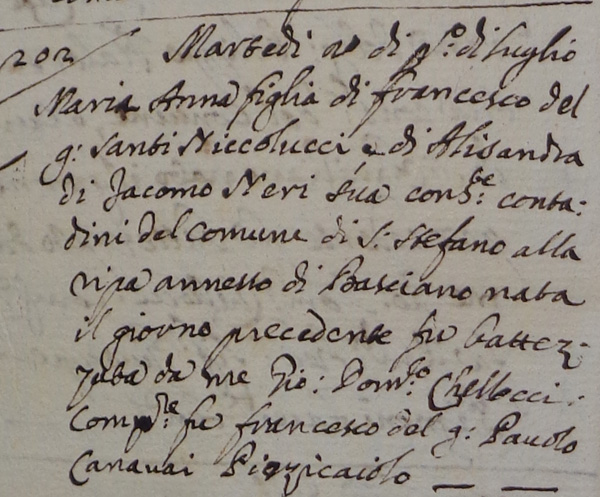 202 Martedi a dì P.o di luglio
Maria Anna figlia di francesco del
q: Santi Niccolucci e di Alisandra
di Jacomo Neri sua cons:te conta:
dini del Comune di S: Stefano alla
ripa annesso di Basciano nata
il giorno precedente fu battez-
zata da me Gio: Dom:co
Comp:re fu francesco del q: Pavolo
Canavai Pizzicaiolo